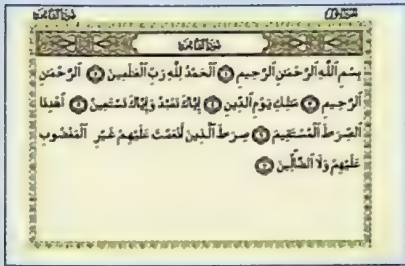 سُورَةُ الفَاتِحَةِ
سُورَةُ الفَاتِحَةِ
بِسْمِ ٱللَّهِ ٱلرَّحْمَٰنِ ٱلرَّحِيمِ ۝١ ٱلْحَمْدُ لِلَّهِ رَبِّ ٱلْعَٰلَمِينَ ۝٢ ٱلرَّحْمَٰنِ
ٱلرَّحِيمِ ۝٣ مَٰلِكِ يَوْمِ ٱلدِّينِ ۝٤ إِيَّاكَ نَعْبُدُ وَإِيَّاكَ نَسْتَعِينُ ۝٥ ٱهْدِنَا
ٱلصِّرَٰطَ ٱلْمُسْتَقِيمَ ۝٦ صِرَٰطَ ٱلَّذِينَ أَنْعَمْتَ عَلَيْهِمْ غَيْرِ ٱلْمَغْضُوبِ
عَلَيْهِمْ وَلَا ٱلضَّآلِّينَ ۝٧